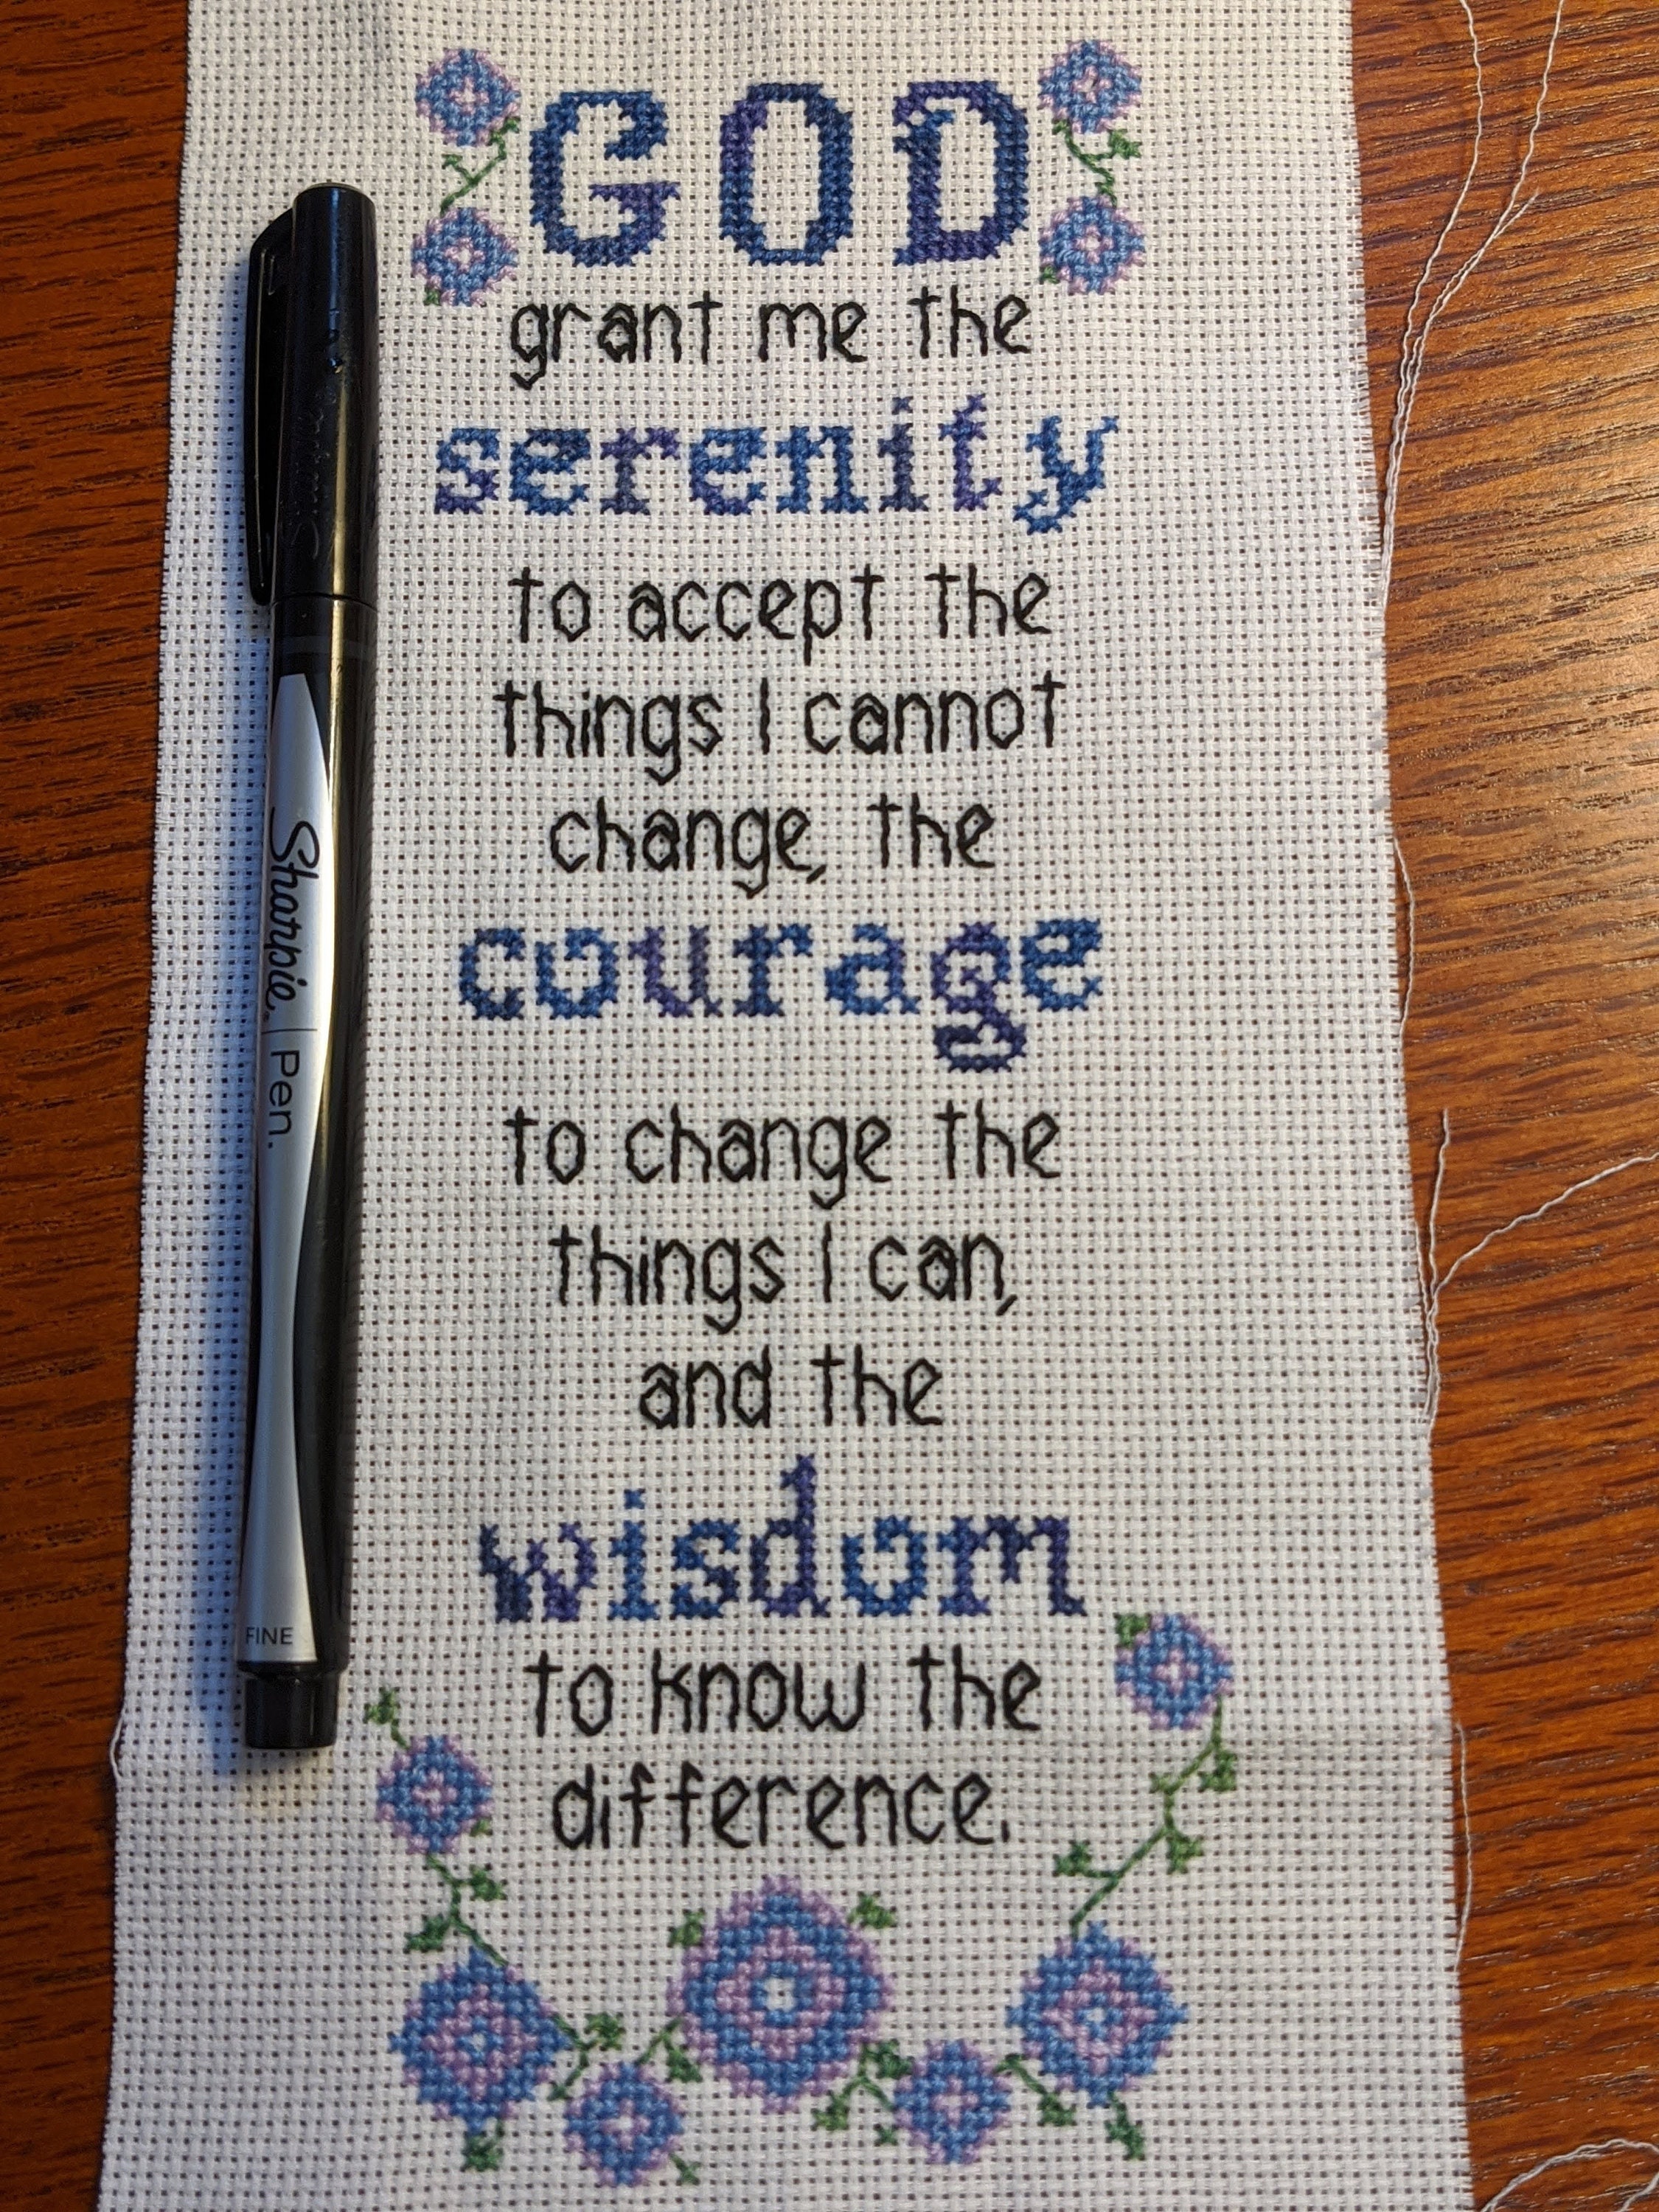 GOD
grant me the
serenity
to accept the
things I cannot
change, the
courage
to change the
things I can,
and the
wisdom
to know the
difference.
Sharpie. | Pen.
FINE
Sharpie